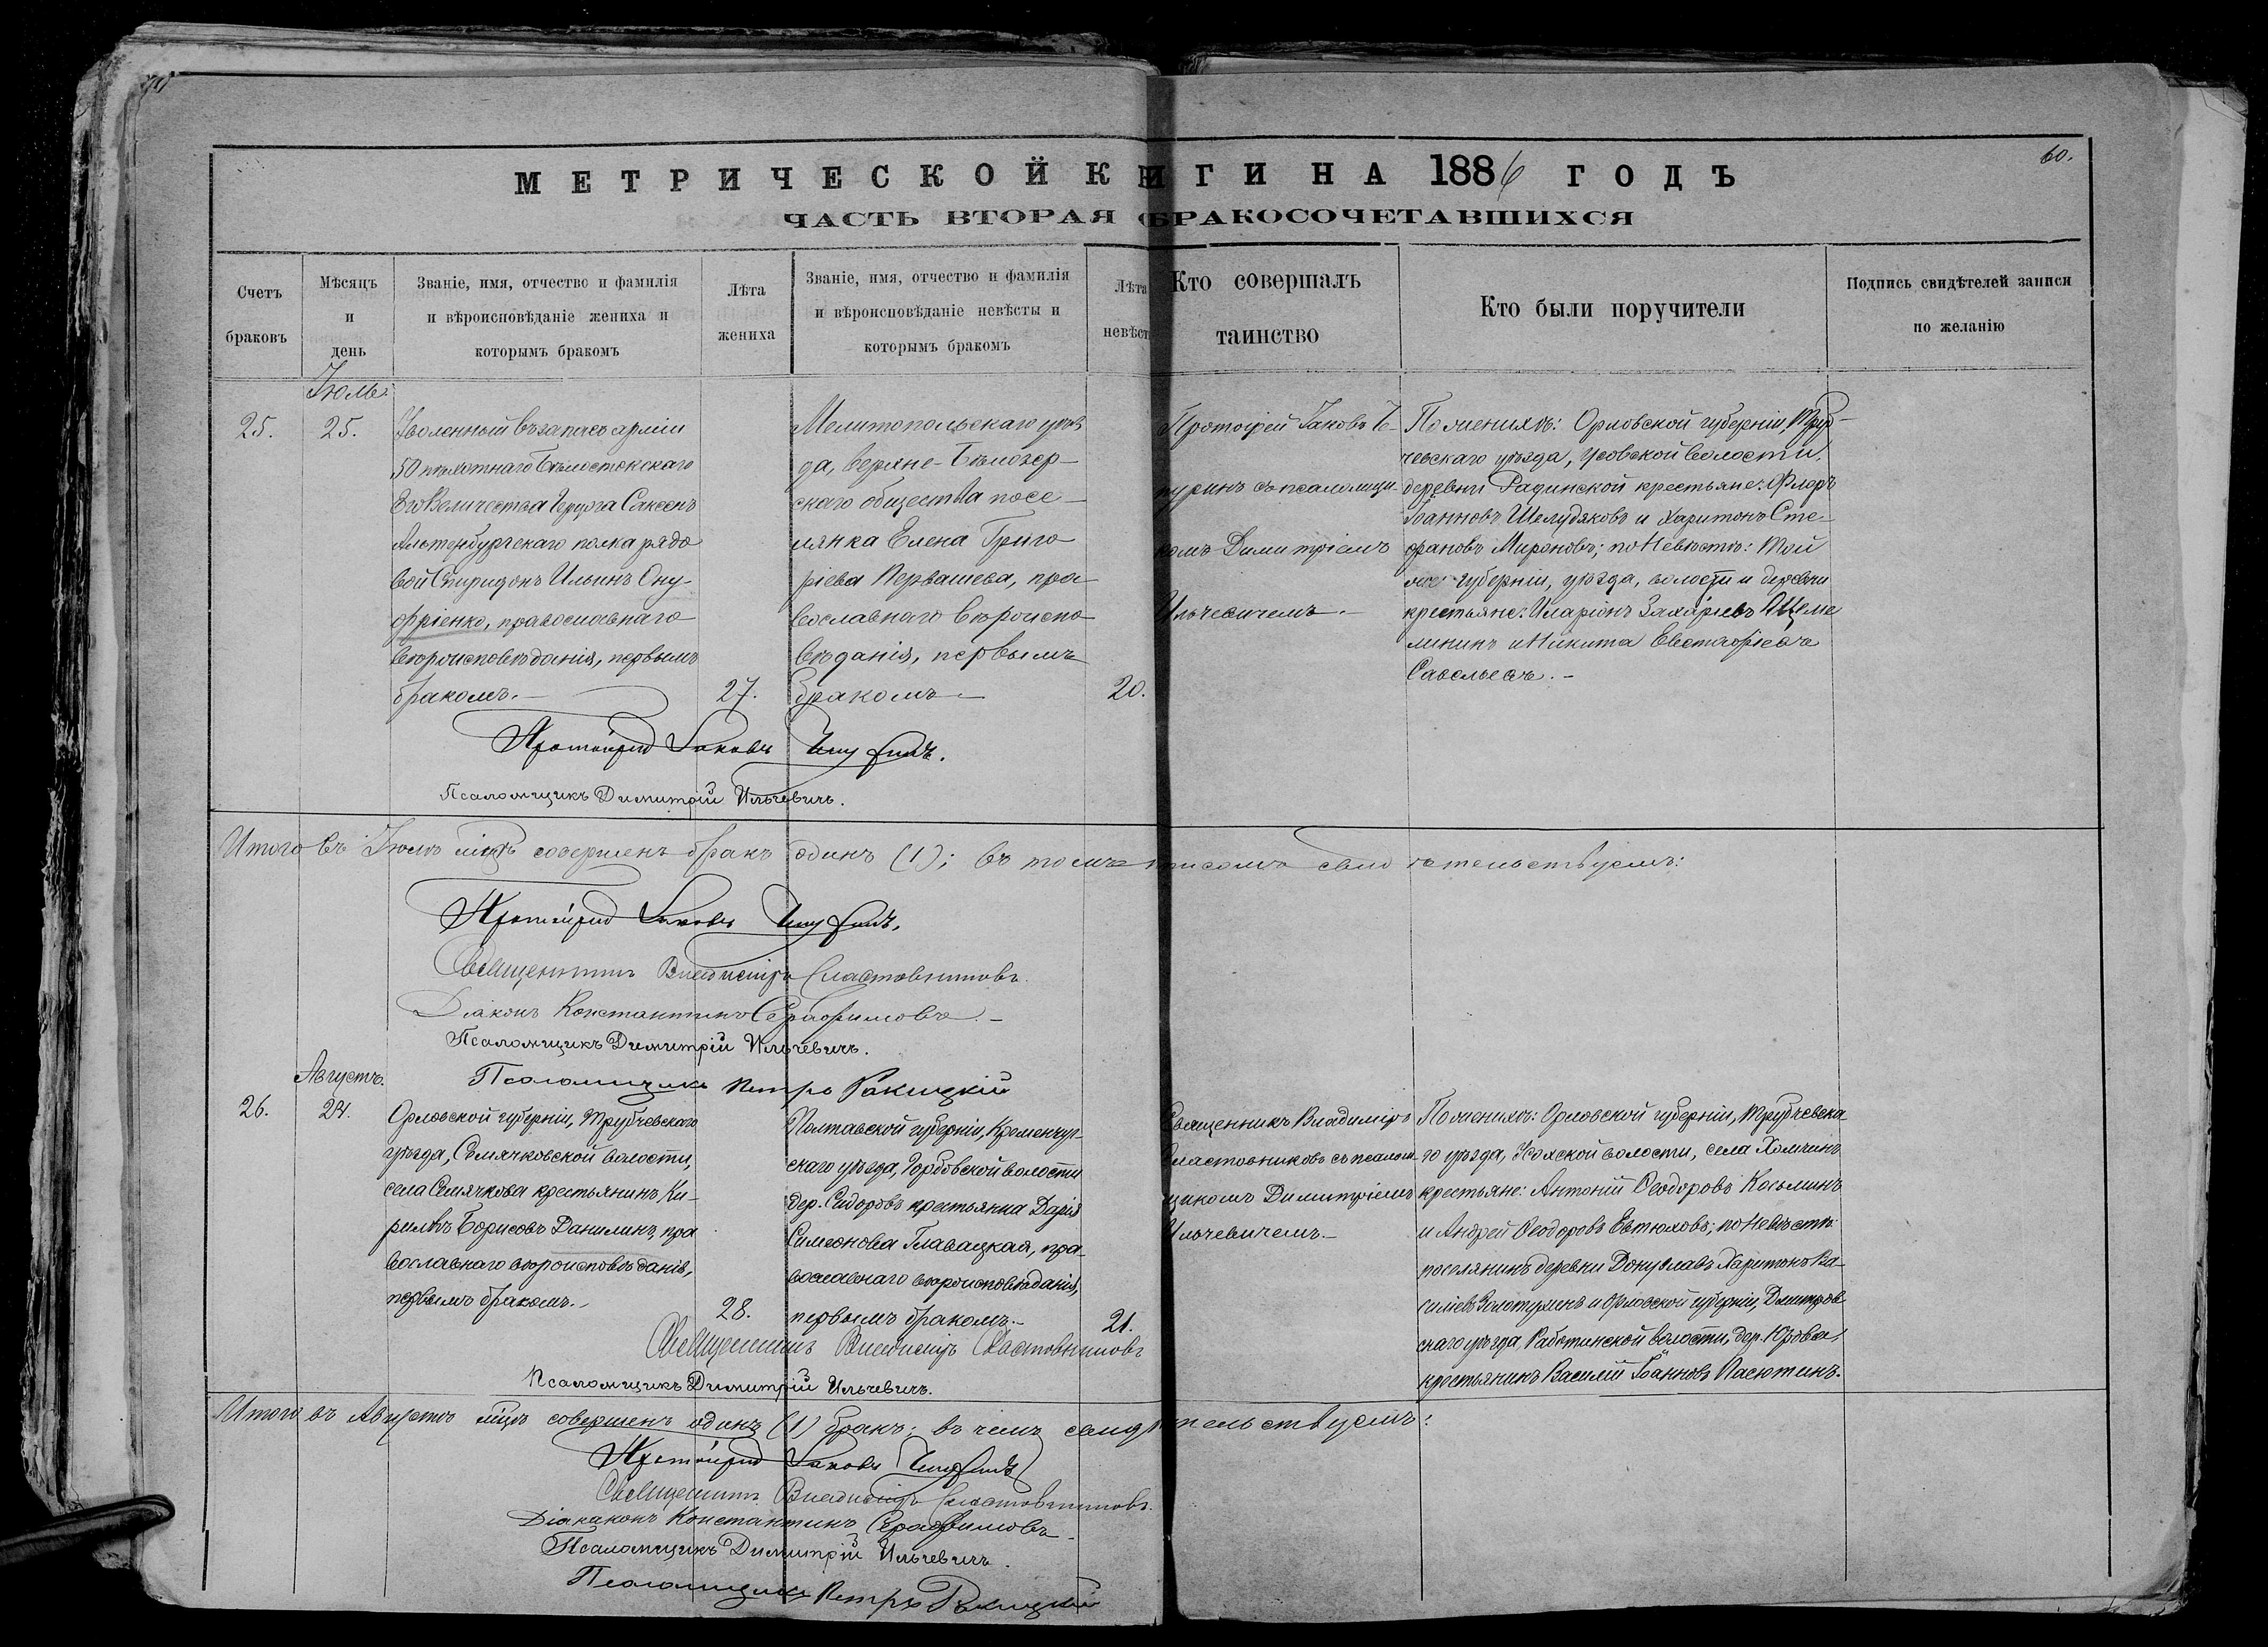 60.
МЕТРИЧЕСКОЙ КНИГИ НА 1886 ГОДЪ
ЧАСТЬ ВТОРАЯ О БРАКОСОЧЕТАВШИХСЯ
Счетъ
браковъ
Мѣсяцъ
и
день
Званіе, имя, отчество и фамилія
и вѣроисповѣданіе жениха и
которымъ бракомъ
Лѣта
жениха
Званіе, имя, отчество и фамилія
и вѣроисповѣданіе невѣсты и
которымъ бракомъ
Лѣта
невѣст
Кто совершалъ
таинство
Кто были поручители
Подпись свидѣтелей записи
по желанію
Іюль
25.
25.
Уволенный въ запасъ арміи
50 пѣхотнаго Бѣлостокскаго
Его Величества Герцога Саксенъ
Альтенбургскаго полка рядо
вой Спиридонъ Ильинъ Ону-
фріенко, православнаго
вѣроисповѣданія, первымъ
бракомъ.
27.
Мелитопольскаго уѣз
да, Верхне-Бѣлозер-
скаго общества посе-
лянка Елена Григо
ріева Первашева, пра-
вославнаго вѣроиспо-
вѣданія, первымъ
бракомъ
20.
Протоіерей Іаковъ Ч-
пуринъ съ псаломщи-
комъ Димитріемъ
Ильчевичемъ.
По женихѣ: Орловской губерніи, Труб-
чевскаго уѣзда, Усовской волости,
деревни Радинской крестьяне: Флоръ
Іоанновъ Шелудяковъ и Харитонъ Сте-
фановъ Мироновъ; по Невѣстѣ: той
же губерніи, уѣзда, волости и деревни
крестьяне: Иларіонъ Захаріевъ
и Никита Евстафіевъ
Савельевъ.
Протоіерей Іаковъ Чепуринъ.
Псаломщикъ Димитрій Ильчевичъ.
Итого въ Іюлѣ мѣсяцѣ совершенъ бракъ одинъ (1); въ томъ подписомъ свидѣтельствуемъ:
Протоіерей Іаковъ Чепуринъ.
Священникъ Владиміръ Сластовниковъ.
Діаконъ Константинъ Серафимовъ.
Псаломщикъ Димитрій Ильчевичъ.
Псаломщикъ Петръ Ракицкій
Августъ.
26.
24.
Орловской губерніи, Трубчевскаго
уѣзда, Сѣмячковской волости,
села Семячкова крестьянинъ Ки-
риллъ Борисовъ Данилинъ, пра
вославнаго вѣроисповѣданія,
первымъ бракомъ.
28.
Полтавской губерніи, Кременчуг-
скаго уѣзда, Горбовской волости
дер. Сидоровъ крестьянка Дарія
Симеонова Главацкая, пра-
вославнаго вѣроисповѣданія,
первымъ бракомъ.
21.
Священникъ Владиміръ
Сластовниковъ съ псалом-
щикомъ Димитріемъ
Ильчевичемъ.
По женихѣ: Орловской губерніи, Трубчевска-
го уѣзда, Усохской волости, села Холмчинъ
крестьяне: Антоній Ѳеодоровъ Косьминъ
и Андрей Ѳеодоровъ Евтюховъ; по Невѣстѣ:
поселянинъ деревни Донузлавъ Харитонъ Ва-
силіевъ Золотухинъ и Орловской губерніи, Дмитров
скаго уѣзда, Работинской волости, дер. Юрова,
крестьянинъ Василій Іоанновъ Пасютинъ.
Священникъ Владиміръ Сластовниковъ
Псаломщикъ Димитрій Ильчевичъ.
Итого въ Августѣ мѣсяцѣ совершенъ одинъ (1) бракъ; въ чемъ свидѣтельствуемъ:
Протоіерей Іаковъ Чепуринъ
Священникъ Владиміръ Сластовниковъ.
Діаконъ Константинъ Серафимовъ
Псаломщикъ Димитрій Ильчевичъ.
Псаломщикъ Петръ Ракицкій